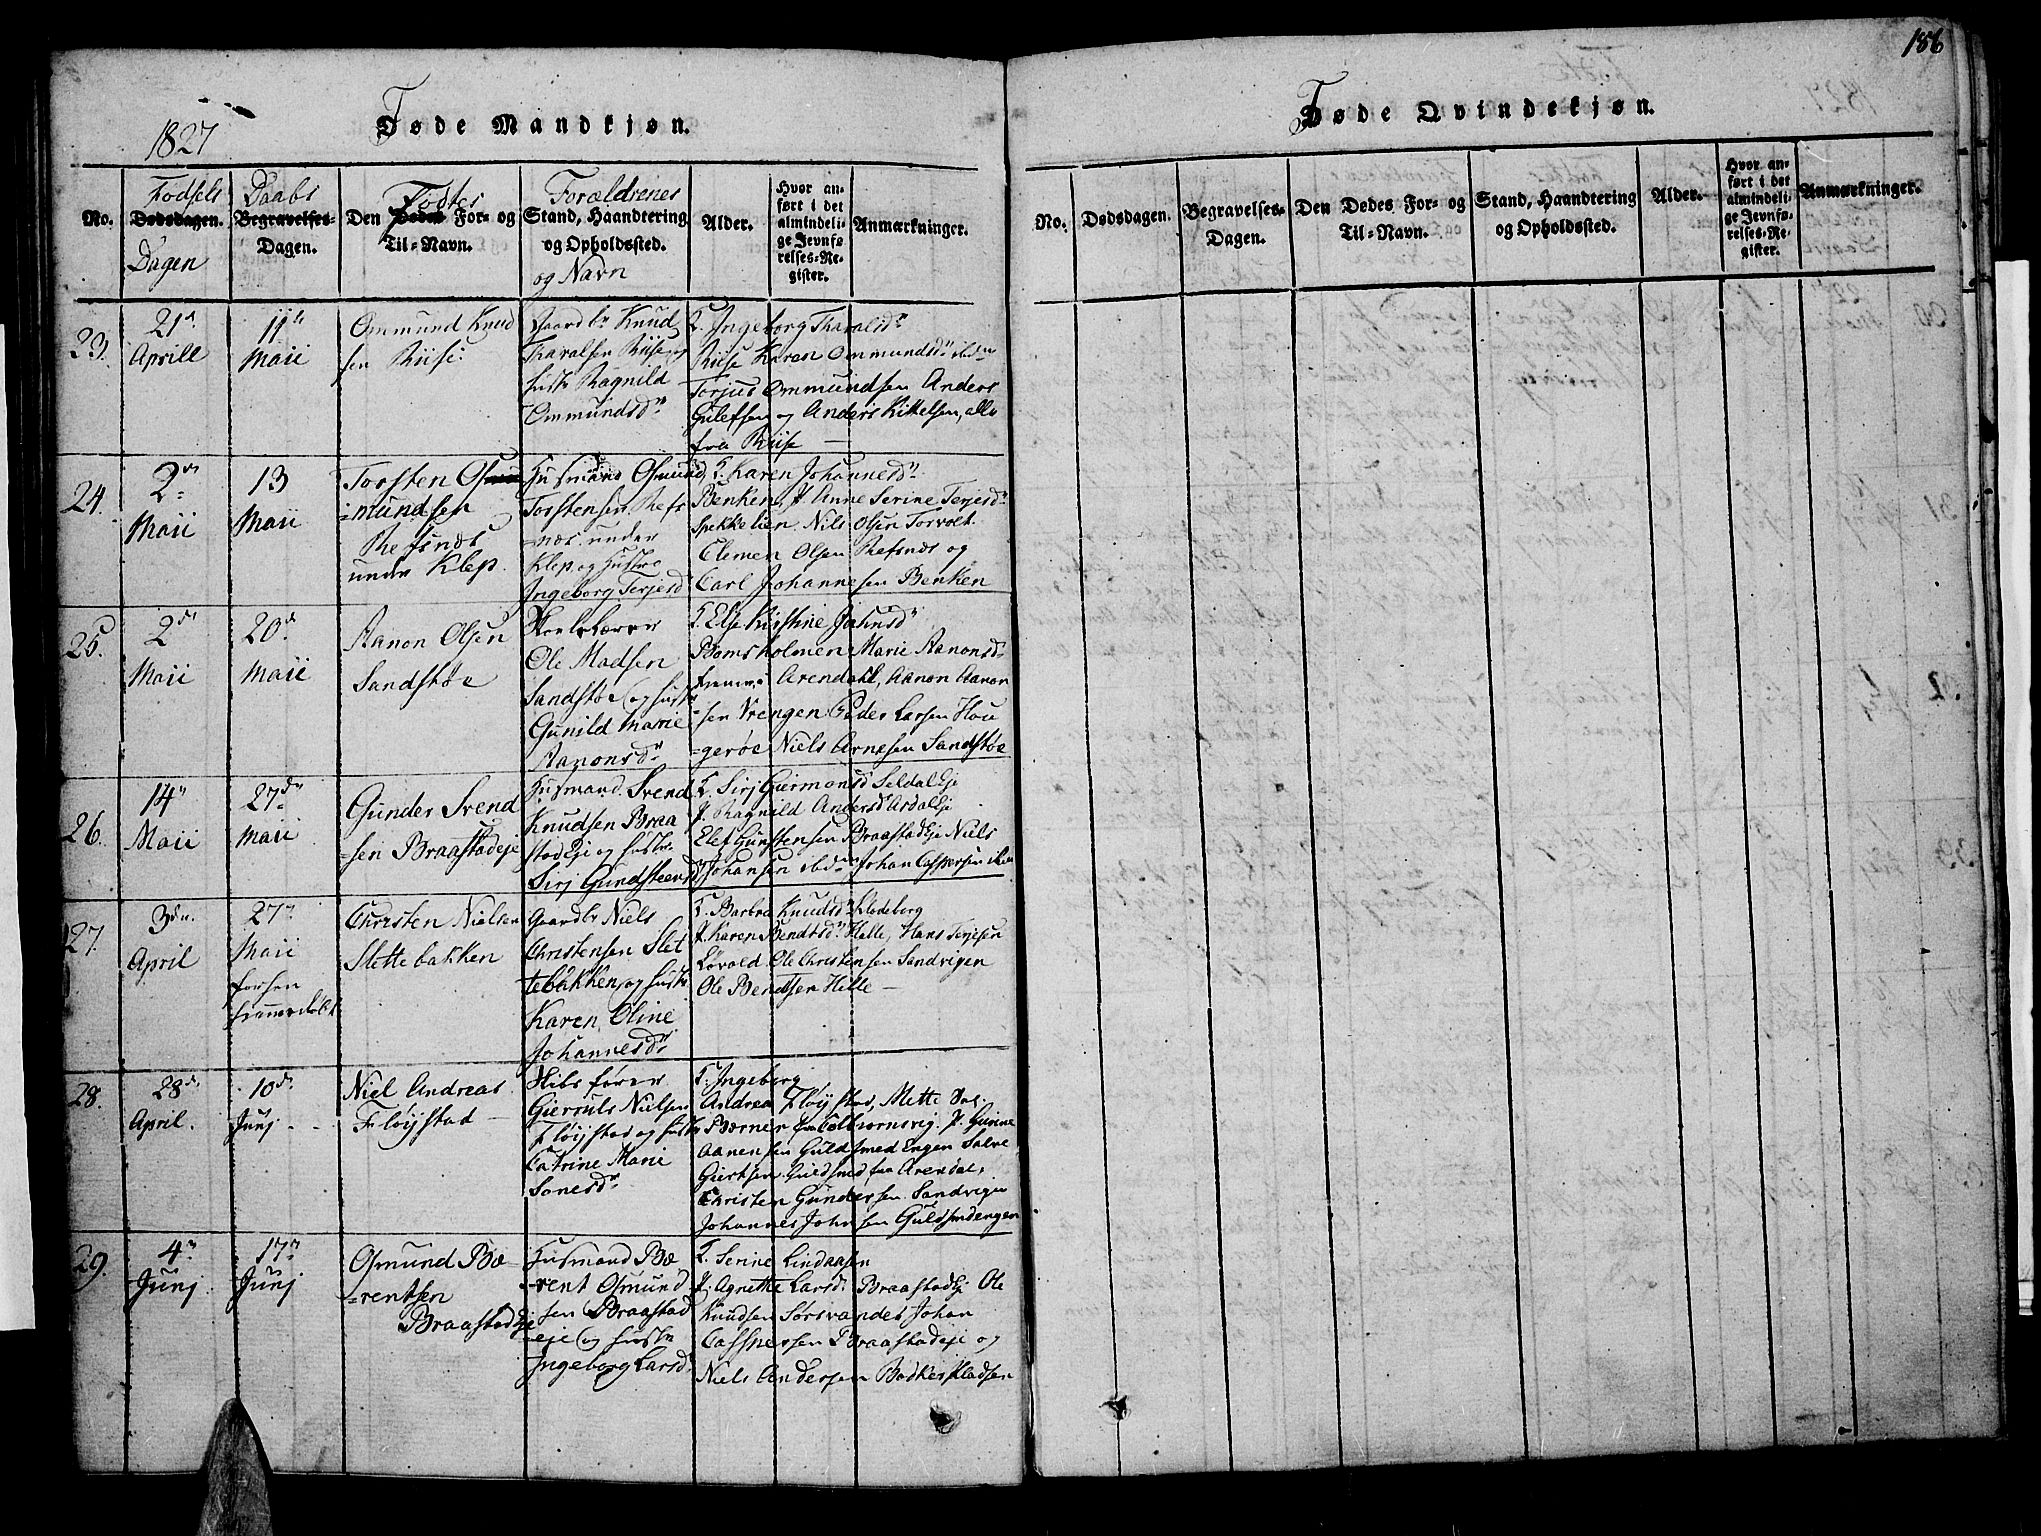 186
1827
Fødte Mandkjøn.
No.
Fødsels
Dødsdagen.
Dagen
Daabs
Begravelses-
Dagen.
Fødtes
Den Dødes For- og
Til-Navn.
Forældrenes
Stand, Haandtering
og Opholdssted.
og Navn
Alder.
Hvor an-
ført i det
almindeli-
ge Jevnfø-
relses-Re-
gister.
Anmærkninger.
23.
21de
Aprill
11te
Maii
Ommund Knud
sen Riise
Gaardbr Knud
Tharalsen Riise og
hustr Ragnild
Ommundsdr
F. Ingeborg Tharalsdr
Riise Karen Ommundsdr ibdm
Torjus Ommundsen Anders
Gulefsen og Anders Kittelsen, alle
fra Riise —
24.
2den
Maii
13
Maii
Torsten Os
=mundsen
Refsnæs
under Klep.
Husmand Osmund
Torstensen Refs
næs under
Klep og Hustro
Ingeborg Terjesdr
F. Karen Johannesdr
Benken, P. Anne Serine Terjesdr
Spekkelien. Nils Olsen Torvolt
Clemen Olsen Refsnæs og
Carl Johannesen Benken
25.
2den
Maii
20de
Maii
Aanon Olsen
Sandstøe
Skolelærer
Ole Madsen
Sandstøe og hustr
Gunild Marie
Aanonsdr
F. Else Kistine Jahnsdr
Bomsholmen Marie Aanonsdr
Arendahl, Aanon Aanon
=sen Vrengen Peder Larsen Hou
=gerøe Niels Arnesen Sandstøe
26.
14de
Maii
27de
Maii
Gunder Svend
=sen Braastadeje
Husmand Svend
Knudsen Braa
stadeje og hustr
Sirj Gundsteensdr
F. Sirj Giermonsd Seldaleje
P. Ragnild Andersdr Asdaleje
Elef Gunstensen Braastadeje Niels
Johansen ibdm Johan Caspersen ibdm
27.
3den
April
27de
Maii
forhen
hjemmedøbt
Christen Nielsen
Slettebakken
Gaardbr Niels
Christensen Slet
tebakken og hustr
Karen Oline
Johannesdr
F. Barbra Knudsdr Klodeborg
P. Karen Bendtsdr Hille, Hans Terjesen
Løvold. Ole Christensen Sandvigen
Ole Bendtsen Hille —
28.
28de
April.
10de
Junj
Niel Andreas
Fløistad —
Skibsfører
Gieruls Nielsen
Fløistad og hustr
Catrine Marie
Sonesdr
F. Ingeborg
Andrea Fløistad, Mette
Børner fra Colbiørnsvig. P. Gurine
Aanensen Guldsmedengen Salve
Giertsen Guldsmed fra Arendal,
Christen Gundersen Sandvigen
Johannes Johnsen Guldsmdengen
29.
4de
Junj
17de
Junj
Osmund Be
=rentsen
Braastadeje
Husmand Be
=rent Osmund
sen Braastad
=eje og hustr
Ingeborg Larsdr
F. Serine Lindaasen
P. Agnethe Larsdr Braastadeje Ole
Knudsen Sørsvandet Johan
Caspersen Braastadeje og
Niels Andersen Bødkerpladsen
Fødte Qvindekjøn.
No.
Dødsdagen.
Begravelses-
Dagen.
Den Dødes For- og
Til-Navn.
Stand, Haandtering
og Opholdssted.
Alder.
Hvor an-
ført i det
almindeli-
ge Jevnfø-
relses-Re-
gister.
Anmærkninger.